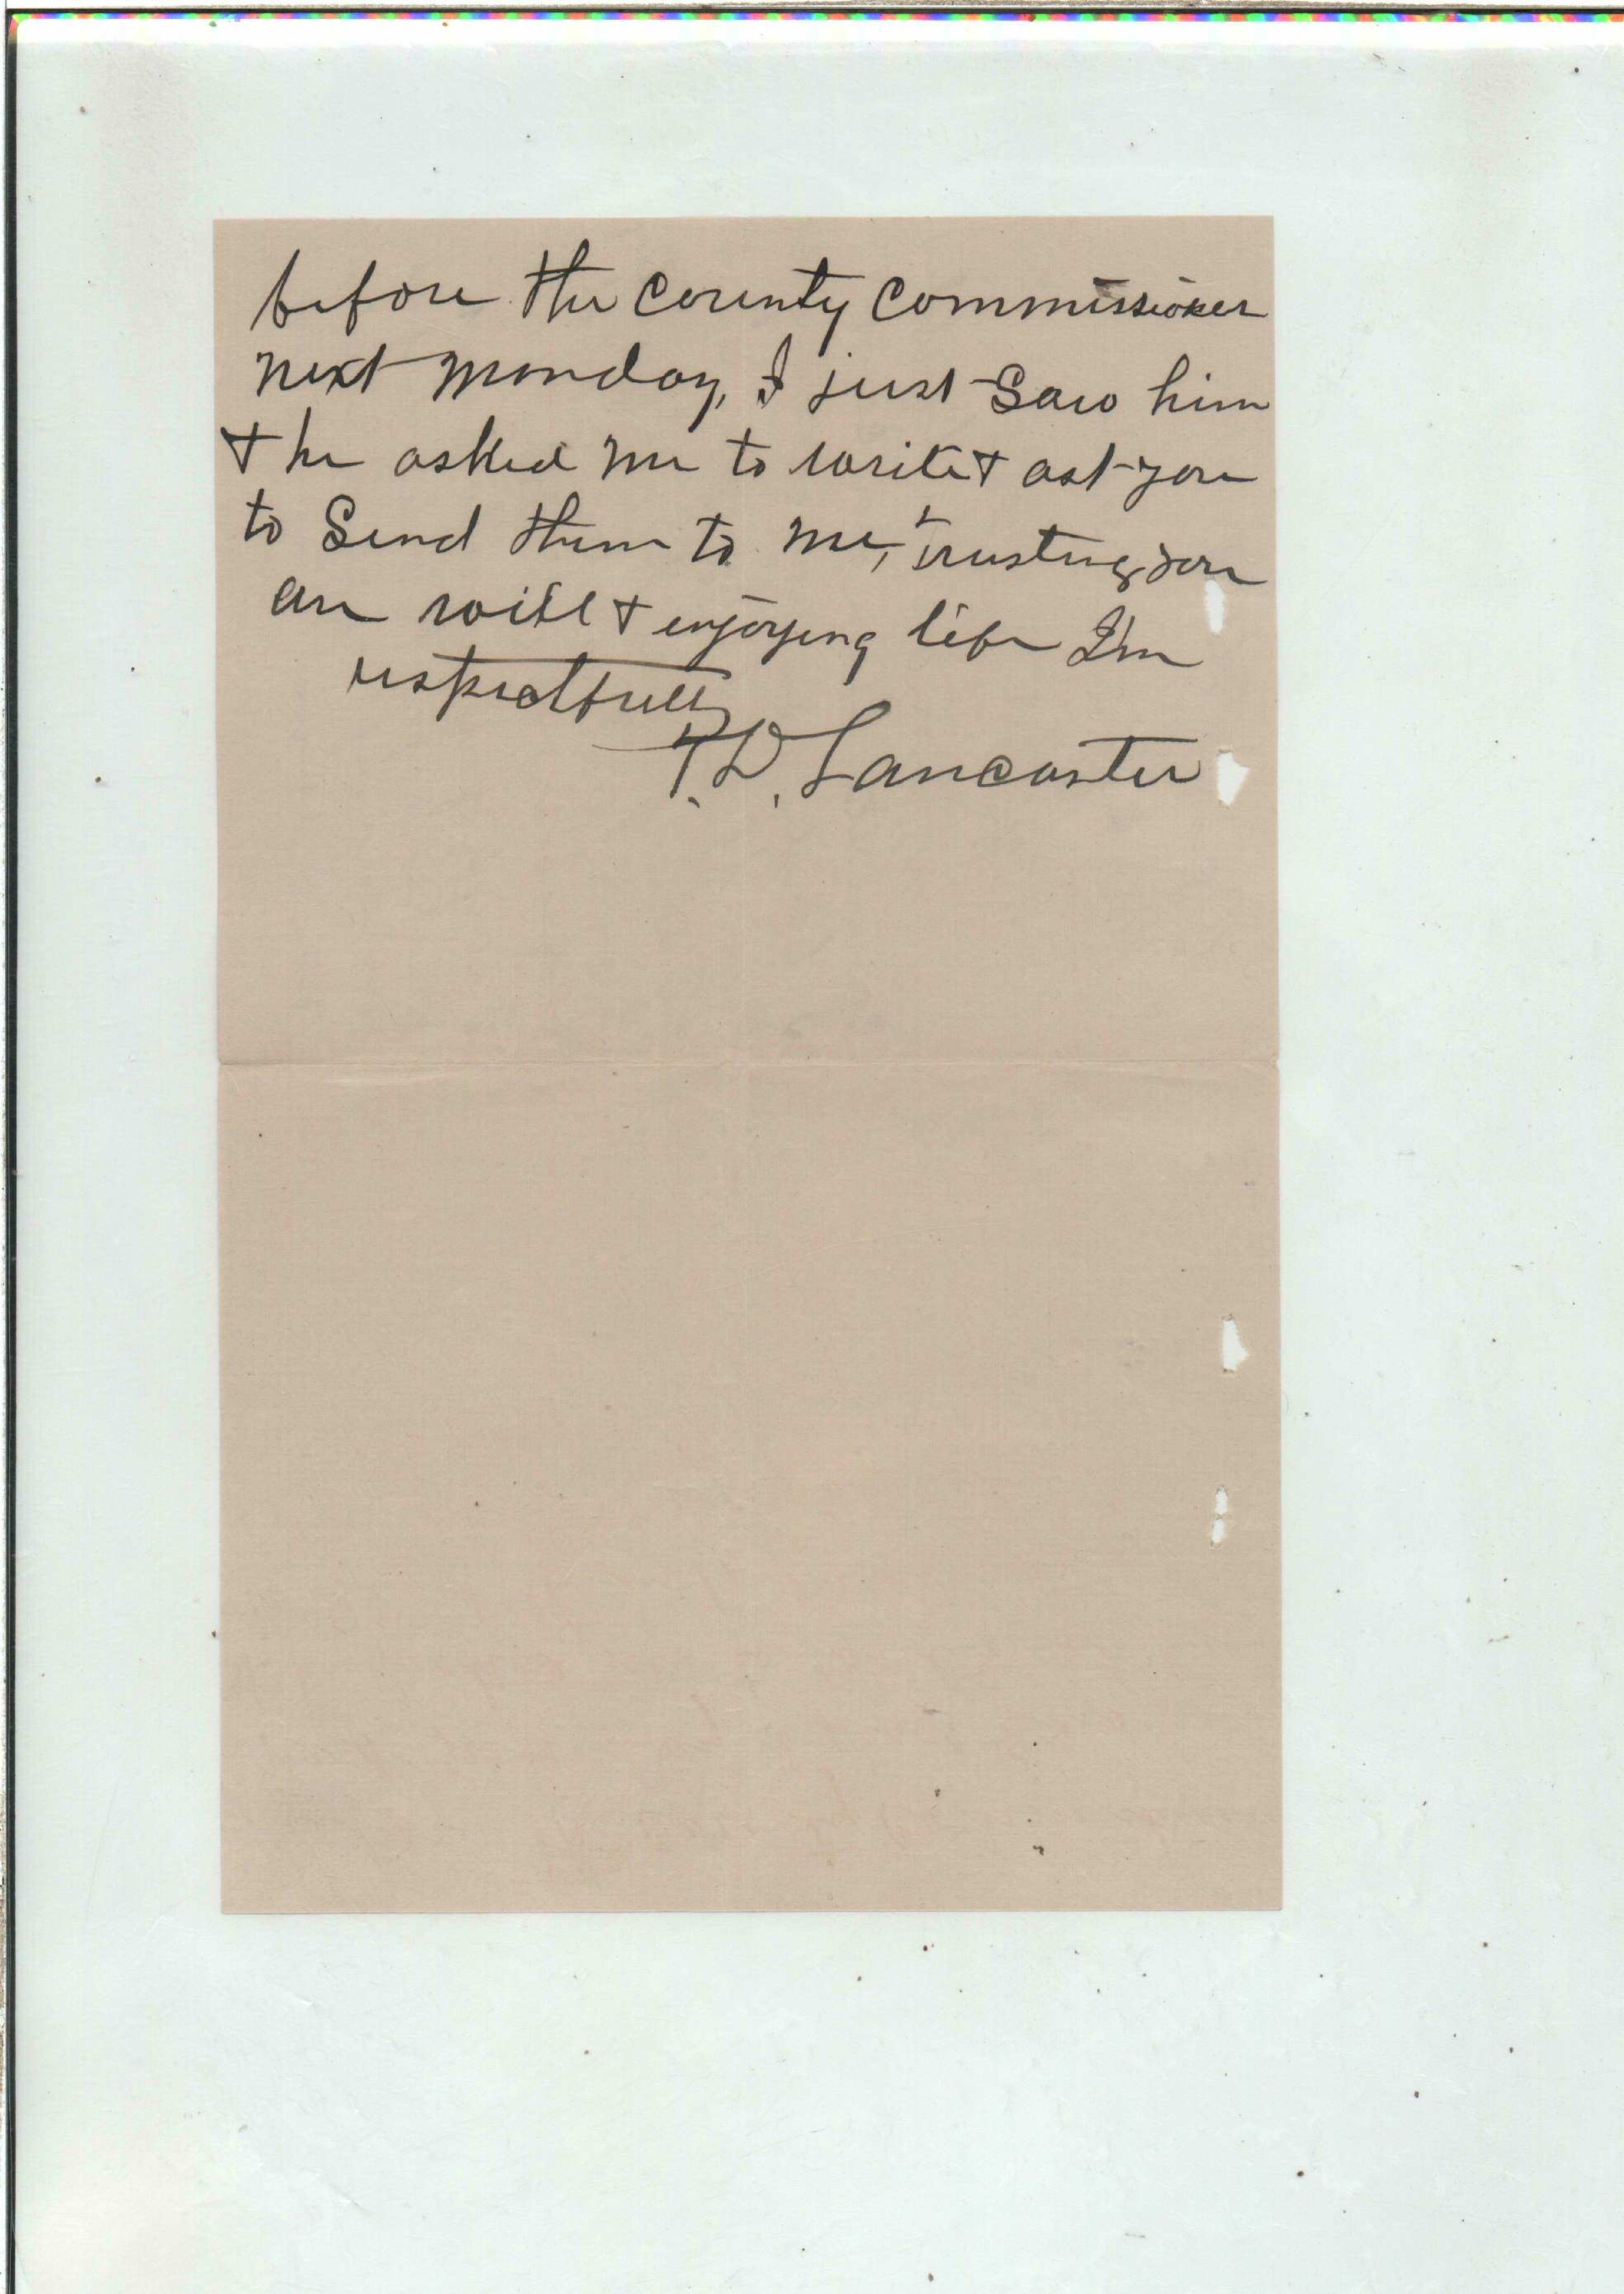 before the County Commissioner
next Monday, I just Saw him
+ he asked me to write + ask you
to Send them to me, trusting you
are well + enjoying life I'm
respectfully
T. D. Lancaster